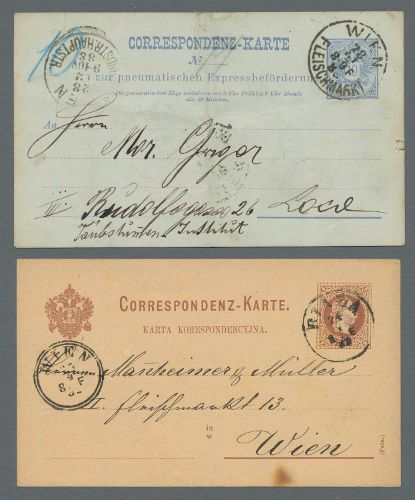 10
CORRESPONDENZ-KARTE
No
zur pneumatischen Expressbeförderung
Die pneumatischen Züge verkehren von 8 Uhr Früh bis 9 Uhr Abends
alle 20 Minuten.
WIEN
FLEISCHMARKT
An Herrn
Mor.
III. Rudolfsgasse 26 Loco
Taubstummen Institut
CORRESPONDENZ-KARTE.
KARTA KORESPONDENCYJNA.
WIEN
Manheimer & Müller
I. Fleischmarkt 13.
in
w
Wien
(Poln.)